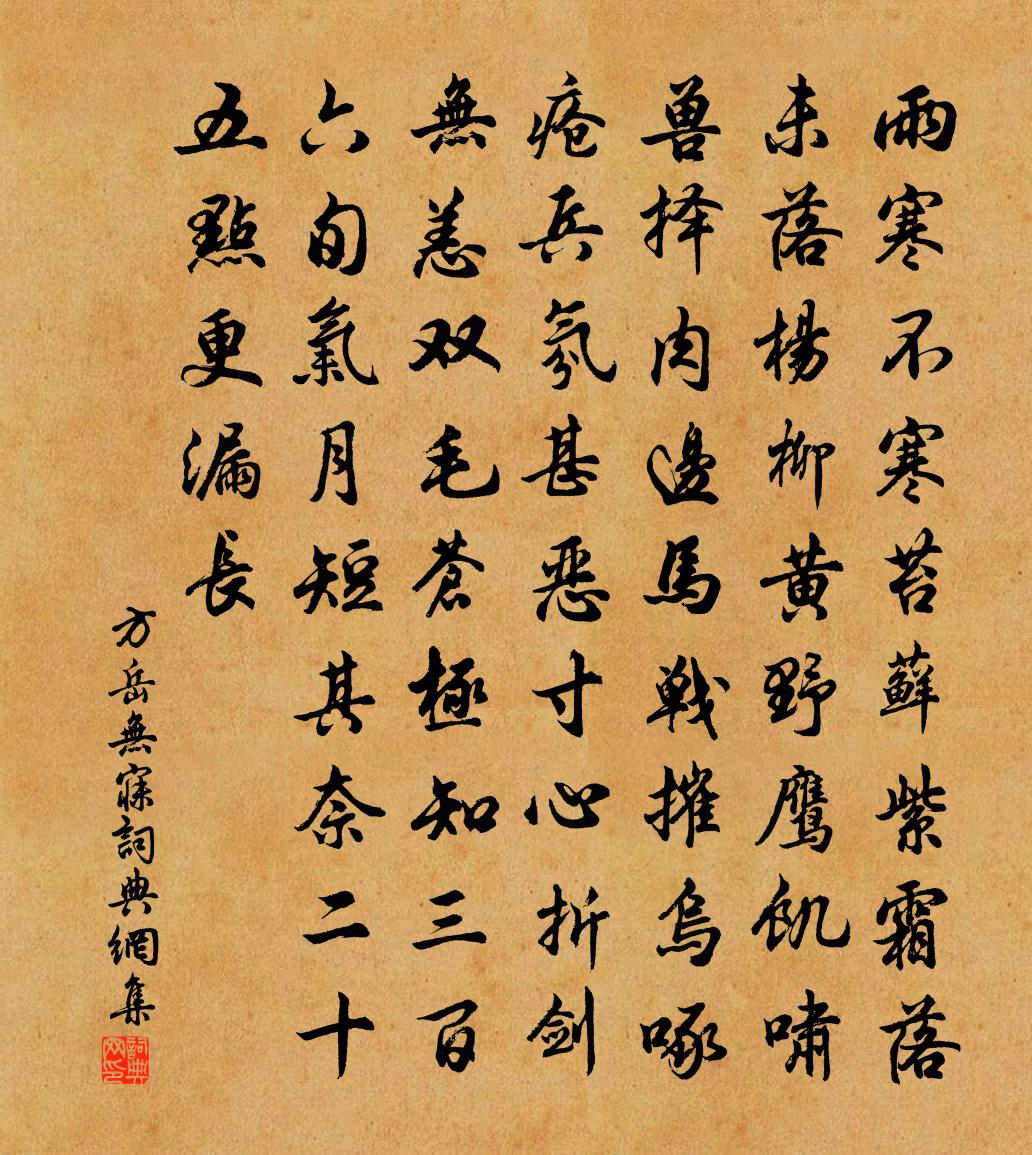 雨寒不寒苔蘚紫霜落
未落楊柳黄野鷹飢嘯
兽择肉邊馬戰摧烏啄
疮兵氛甚惡寸心折剑
無恙双毛蒼極知三百
六旬氣月短其奈二十
五點更漏長
方岳無寐詞典網集
詞典网印